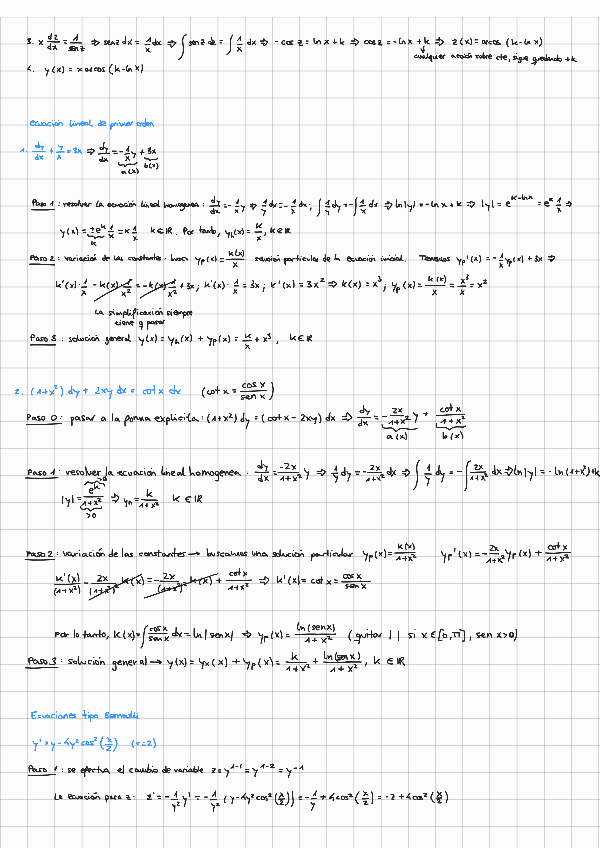 3. x dz/dx = 1/sen z ⇒ sen z dz = 1/x dx ⇒ ∫ sen z dz = ∫ 1/x dx ⇒ -cos z = ln x + k ⇒ cos z = -ln x + k ⇒ z(x) = arcos (k - ln x)
cualquier acción sobre cte, sigue quedando +k
4. y(x) = x arcos (k - ln x)
ecuación lineal de primer orden
1. dy/dx + y/x = 3x ⇒ dy/dx = -1/x y + 3x
a(x) b(x)
Paso 1: resolver la ecuación lineal homogenea: dy/dx = -1/x y ⇒ 1/y dy = -1/x dx; ∫ 1/y dy = -∫ 1/x dx ⇒ ln|y| = -ln x + k ⇒ |y| = e^(k-ln x) = e^k 1/x ⇒
y(x) = ±e^k 1/x = k 1/x k∈ℝ. Por tanto, y_h(x) = k/x, k∈ℝ
k
Paso 2: variación de las constantes. busca y_p(x) = k(x)/x solución particular de la ecuación inicial. Tenemos y_p'(x) = -1/x y_p(x) + 3x ⇒
k'(x) · 1/x - k(x) · 1/x² = -k(x) · 1/x² + 3x; k'(x) · 1/x = 3x; k'(x) = 3x² ⇒ k(x) = x³; y_p(x) = k(x)/x = x³/x = x²
La simplificación siempre
tiene q pasar
Paso 3: solución general y(x) = y_h(x) + y_p(x) = k/x + x³, k∈ℝ
2. (1+x²) dy + 2xy dx = cot x dx (cot x = cos x/sen x)
Paso 0: pasar a la forma explicita: (1+x²) dy = (cot x - 2xy) dx ⇒ dy/dx = -2x/(1+x²) y + cot x/(1+x²)
a(x) b(x)
Paso 1: resolver la ecuación lineal homogenea: dy/dx = -2x/(1+x²) y ⇒ 1/y dy = -2x/(1+x²) dx ⇒ ∫ 1/y dy = -∫ 2x/(1+x²) dx ⇒ ln|y| = -ln(1+x²)+k
|y| = e^k/(1+x²) ⇒ y_h = k/(1+x²) k∈ℝ
>0 >0
Paso 2: variación de las constantes → buscamos una solución particular y_p(x) = k(x)/(1+x²) y_p'(x) = -2x/(1+x²) y_p(x) + cot x/(1+x²)
k'(x)/(1+x²) - 2x/(1+x²)² k(x) = -2x/(1+x²)² k(x) + cot x/(1+x²) ⇒ k'(x) = cot x = cos x/sen x
Por lo tanto, k(x) = ∫ cos x/sen x dx = ln|sen x| ⇒ y_p(x) = ln(sen x)/(1+x²) (quitar | | si x∈[0,π], sen x>0)
Paso 3: solución general → y(x) = y_h(x) + y_p(x) = k/(1+x²) + ln(sen x)/(1+x²), k∈ℝ
Ecuaciones tipo Bernoulli
y' = y - 4y² cos² (x/2) (r=2)
Paso 1: se efectua el cambio de variable z = y^(1-r) = y^(1-2) = y^(-1)
La ecuación para z: z' = -1/y² y' = -1/y² (y - 4y² cos² (x/2)) = -1/y + 4cos² (x/2) = -z + 4cos² (x/2)